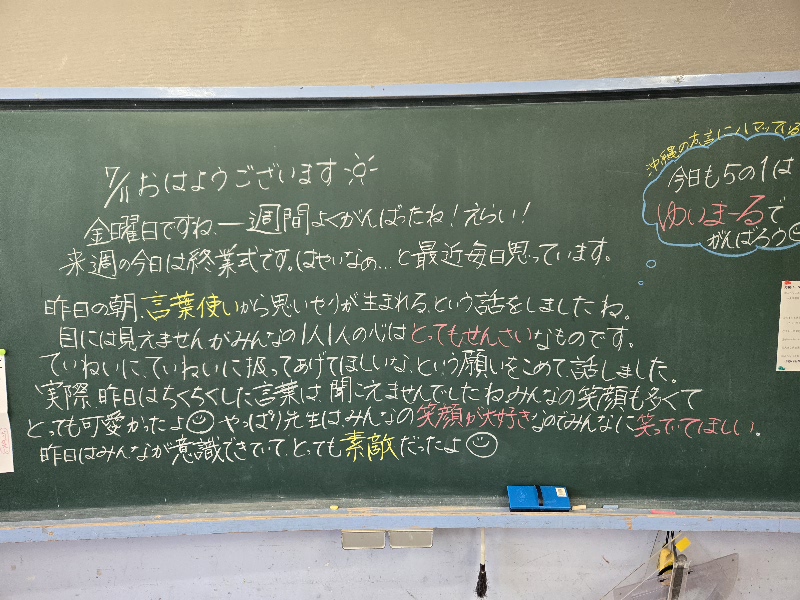 7/11 おはようございます
金曜日ですね、一週間よくがんばったね！えらい！
来週の今日は終業式です。はやいなぁ…と最近毎日思っています。
昨日の朝、言葉使いから思いやりが生まれる、という話をしましたね。
目には見えませんがみんなの1人1人の心はとってもせんさいなものです。
ていねいに、ていねいに扱ってあげてほしいな、という願いをこめて話しました。
実際、昨日はちくちくした言葉は聞こえませんでしたね。みんなの笑顔も多くて
とっても可愛かったよ やっぱり先生はみんなの笑顔が大好きなのでみんなに笑っていてほしい。
昨日はみんなが意識できていて、とっても素敵だったよ
沖縄の方言にハマっている
今日も5の1は
ゆいまーるで
がんばろう